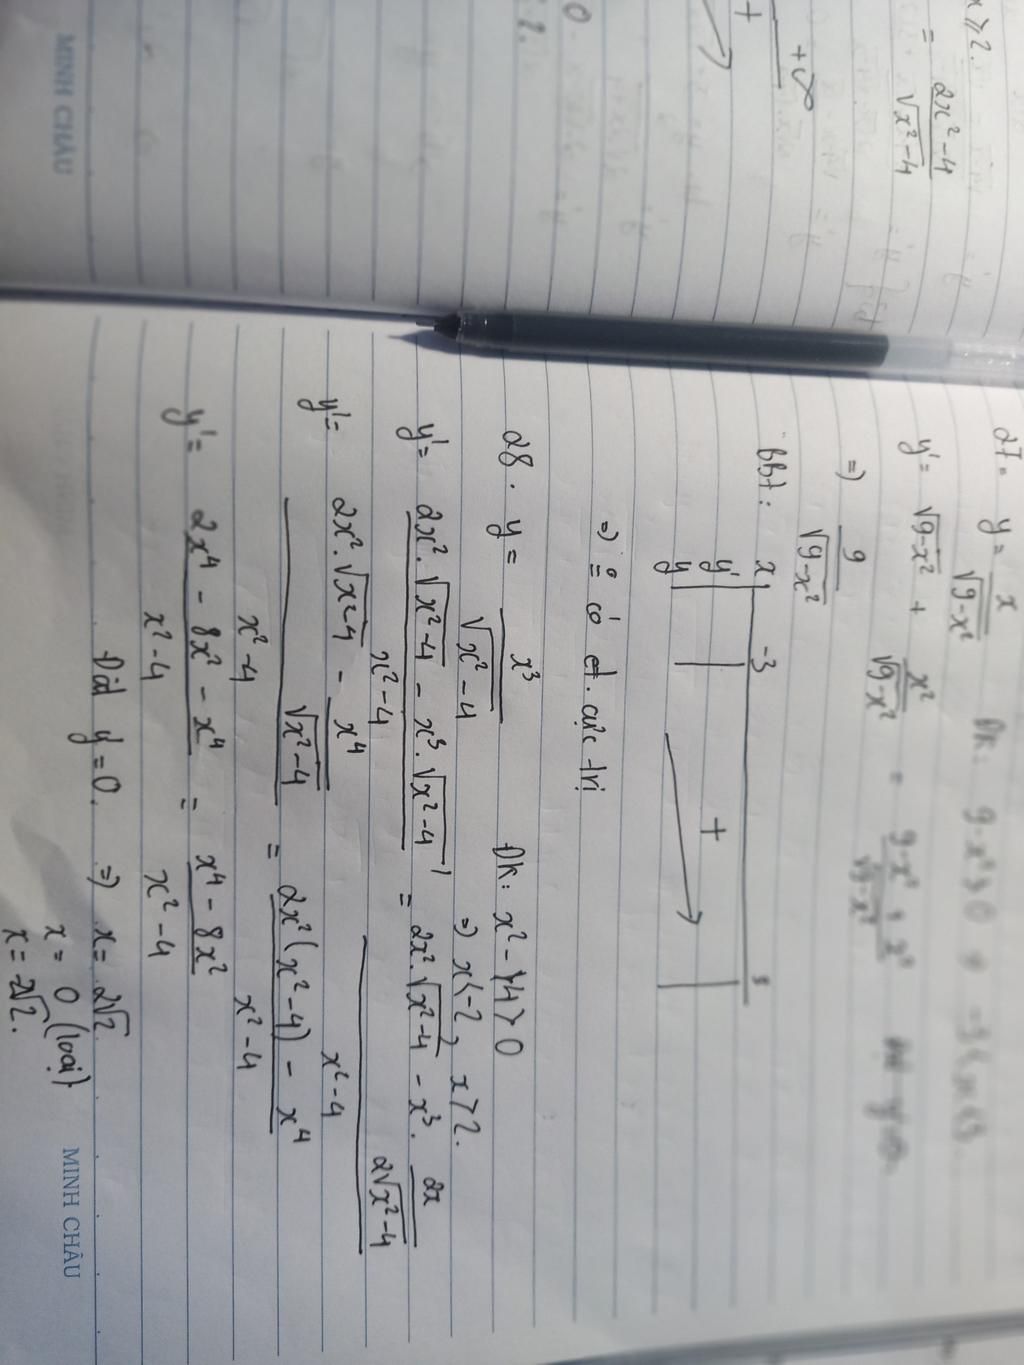 x ≥ 2.
= \frac{2x^2-4}{\sqrt{x^2-4}}
+∞
+
MINH CHÂU
27. y = \frac{x}{\sqrt{9-x^2}} ĐK: 9-x^2 > 0
y' = \sqrt{9-x^2} + \frac{x^2}{\sqrt{9-x^2}} = \frac{9-x^2+x^2}{\sqrt{9-x^2}}
=) \frac{9}{\sqrt{9-x^2}}
bbt: x -3 3
y' +
y
=) ko có đ. cực trị
28. y = \frac{x^3}{\sqrt{x^2-4}} ĐK: x^2-4 > 0
=) x<-2, x>2.
y' = \frac{2x^2.\sqrt{x^2-4} - x^3.\sqrt{x^2-4}'}{x^2-4} = \frac{2x^2.\sqrt{x^2-4} - x^3.\frac{2x}{2\sqrt{x^2-4}}}{x^2-4}
y' = \frac{2x^2.\sqrt{x^2-4} - \frac{x^4}{\sqrt{x^2-4}}}{x^2-4} = \frac{2x^2(x^2-4) - x^4}{x^2-4}
y' = \frac{2x^4 - 8x^2 - x^4}{x^2-4} = \frac{x^4-8x^2}{x^2-4}
Đặt y'=0. =) x = 2\sqrt{2}
x = 0 (loại)
x = -2\sqrt{2}.
MINH CHÂU